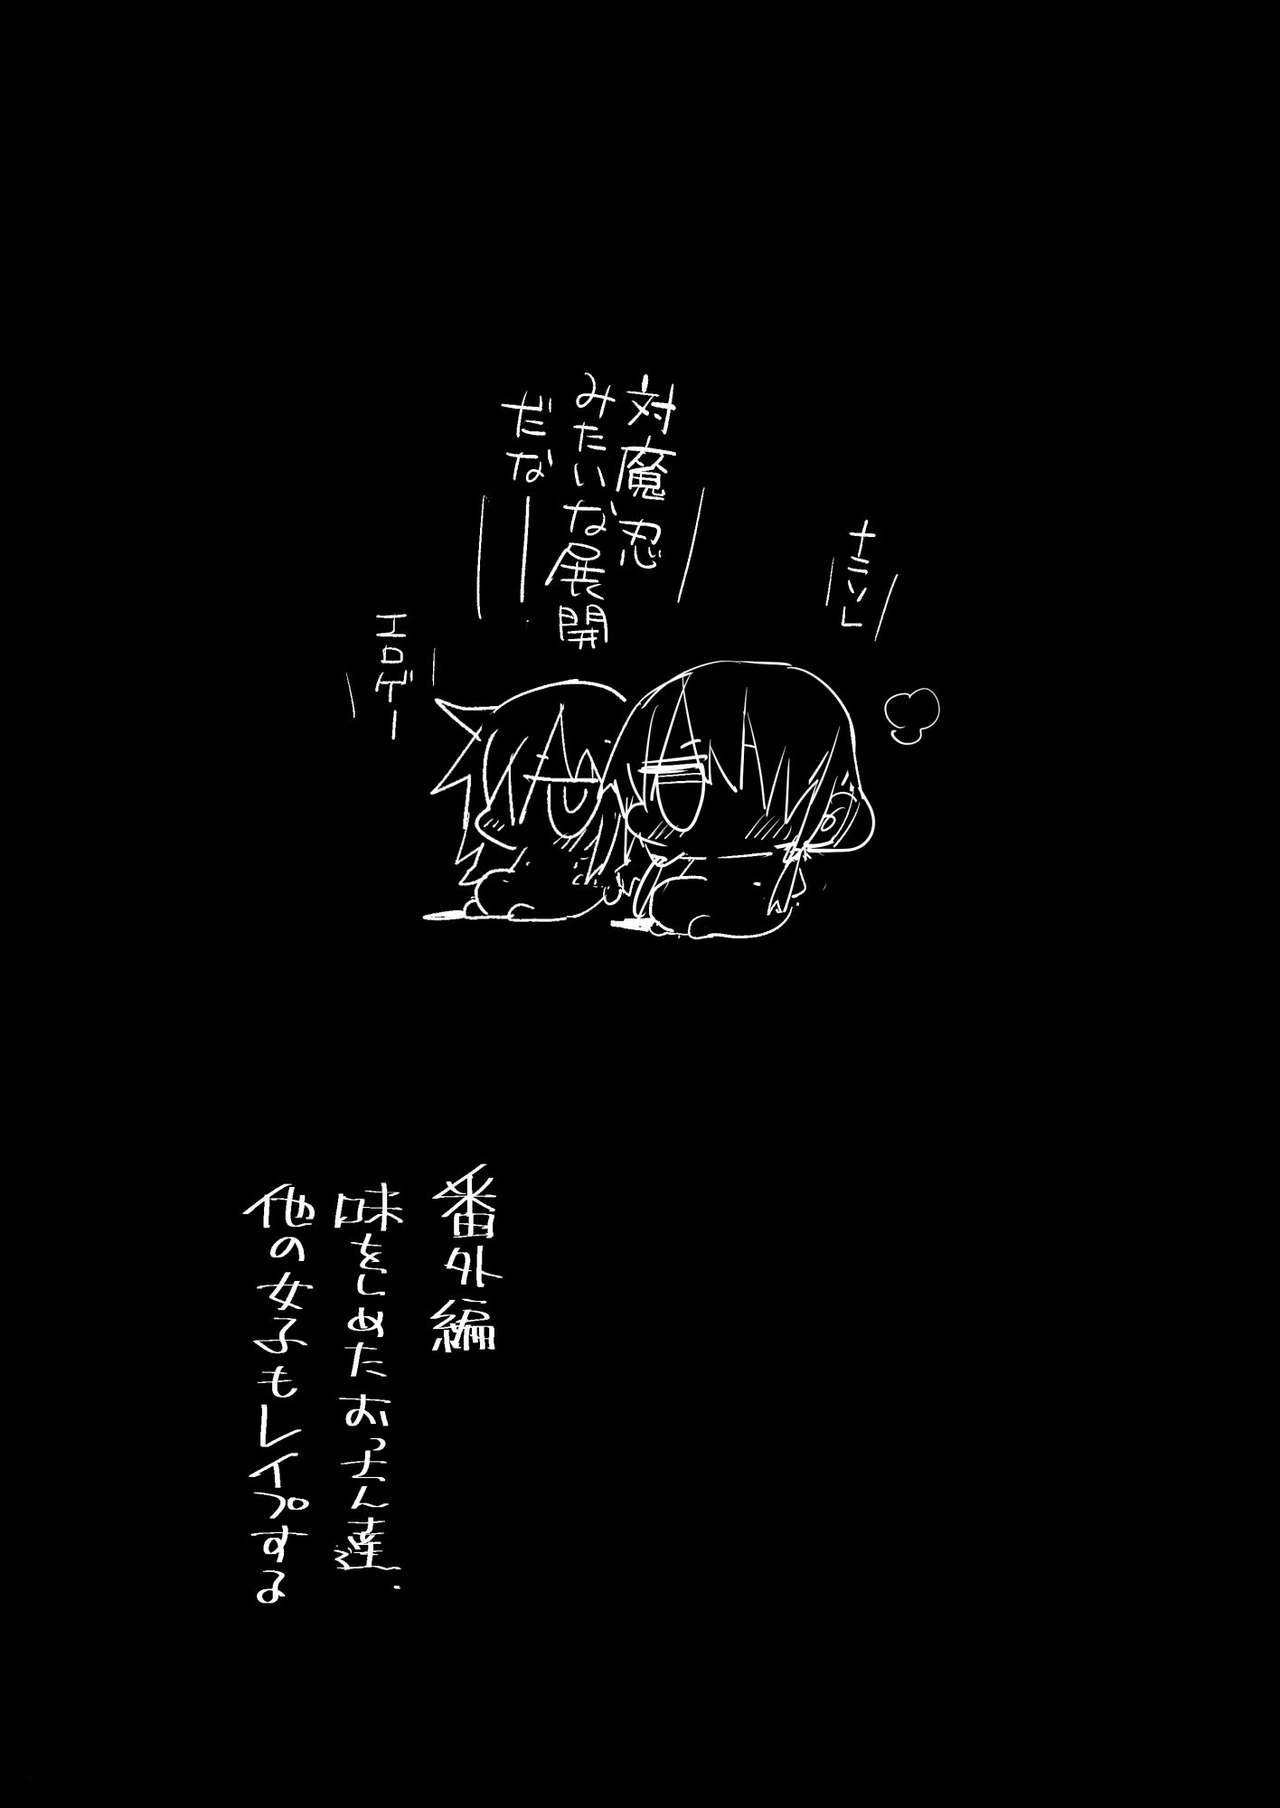 ナニソレ
対魔忍
みたいな展開
だなー
エロゲー
番外編
味をしめたおっさん達、
他の女子もレイプする